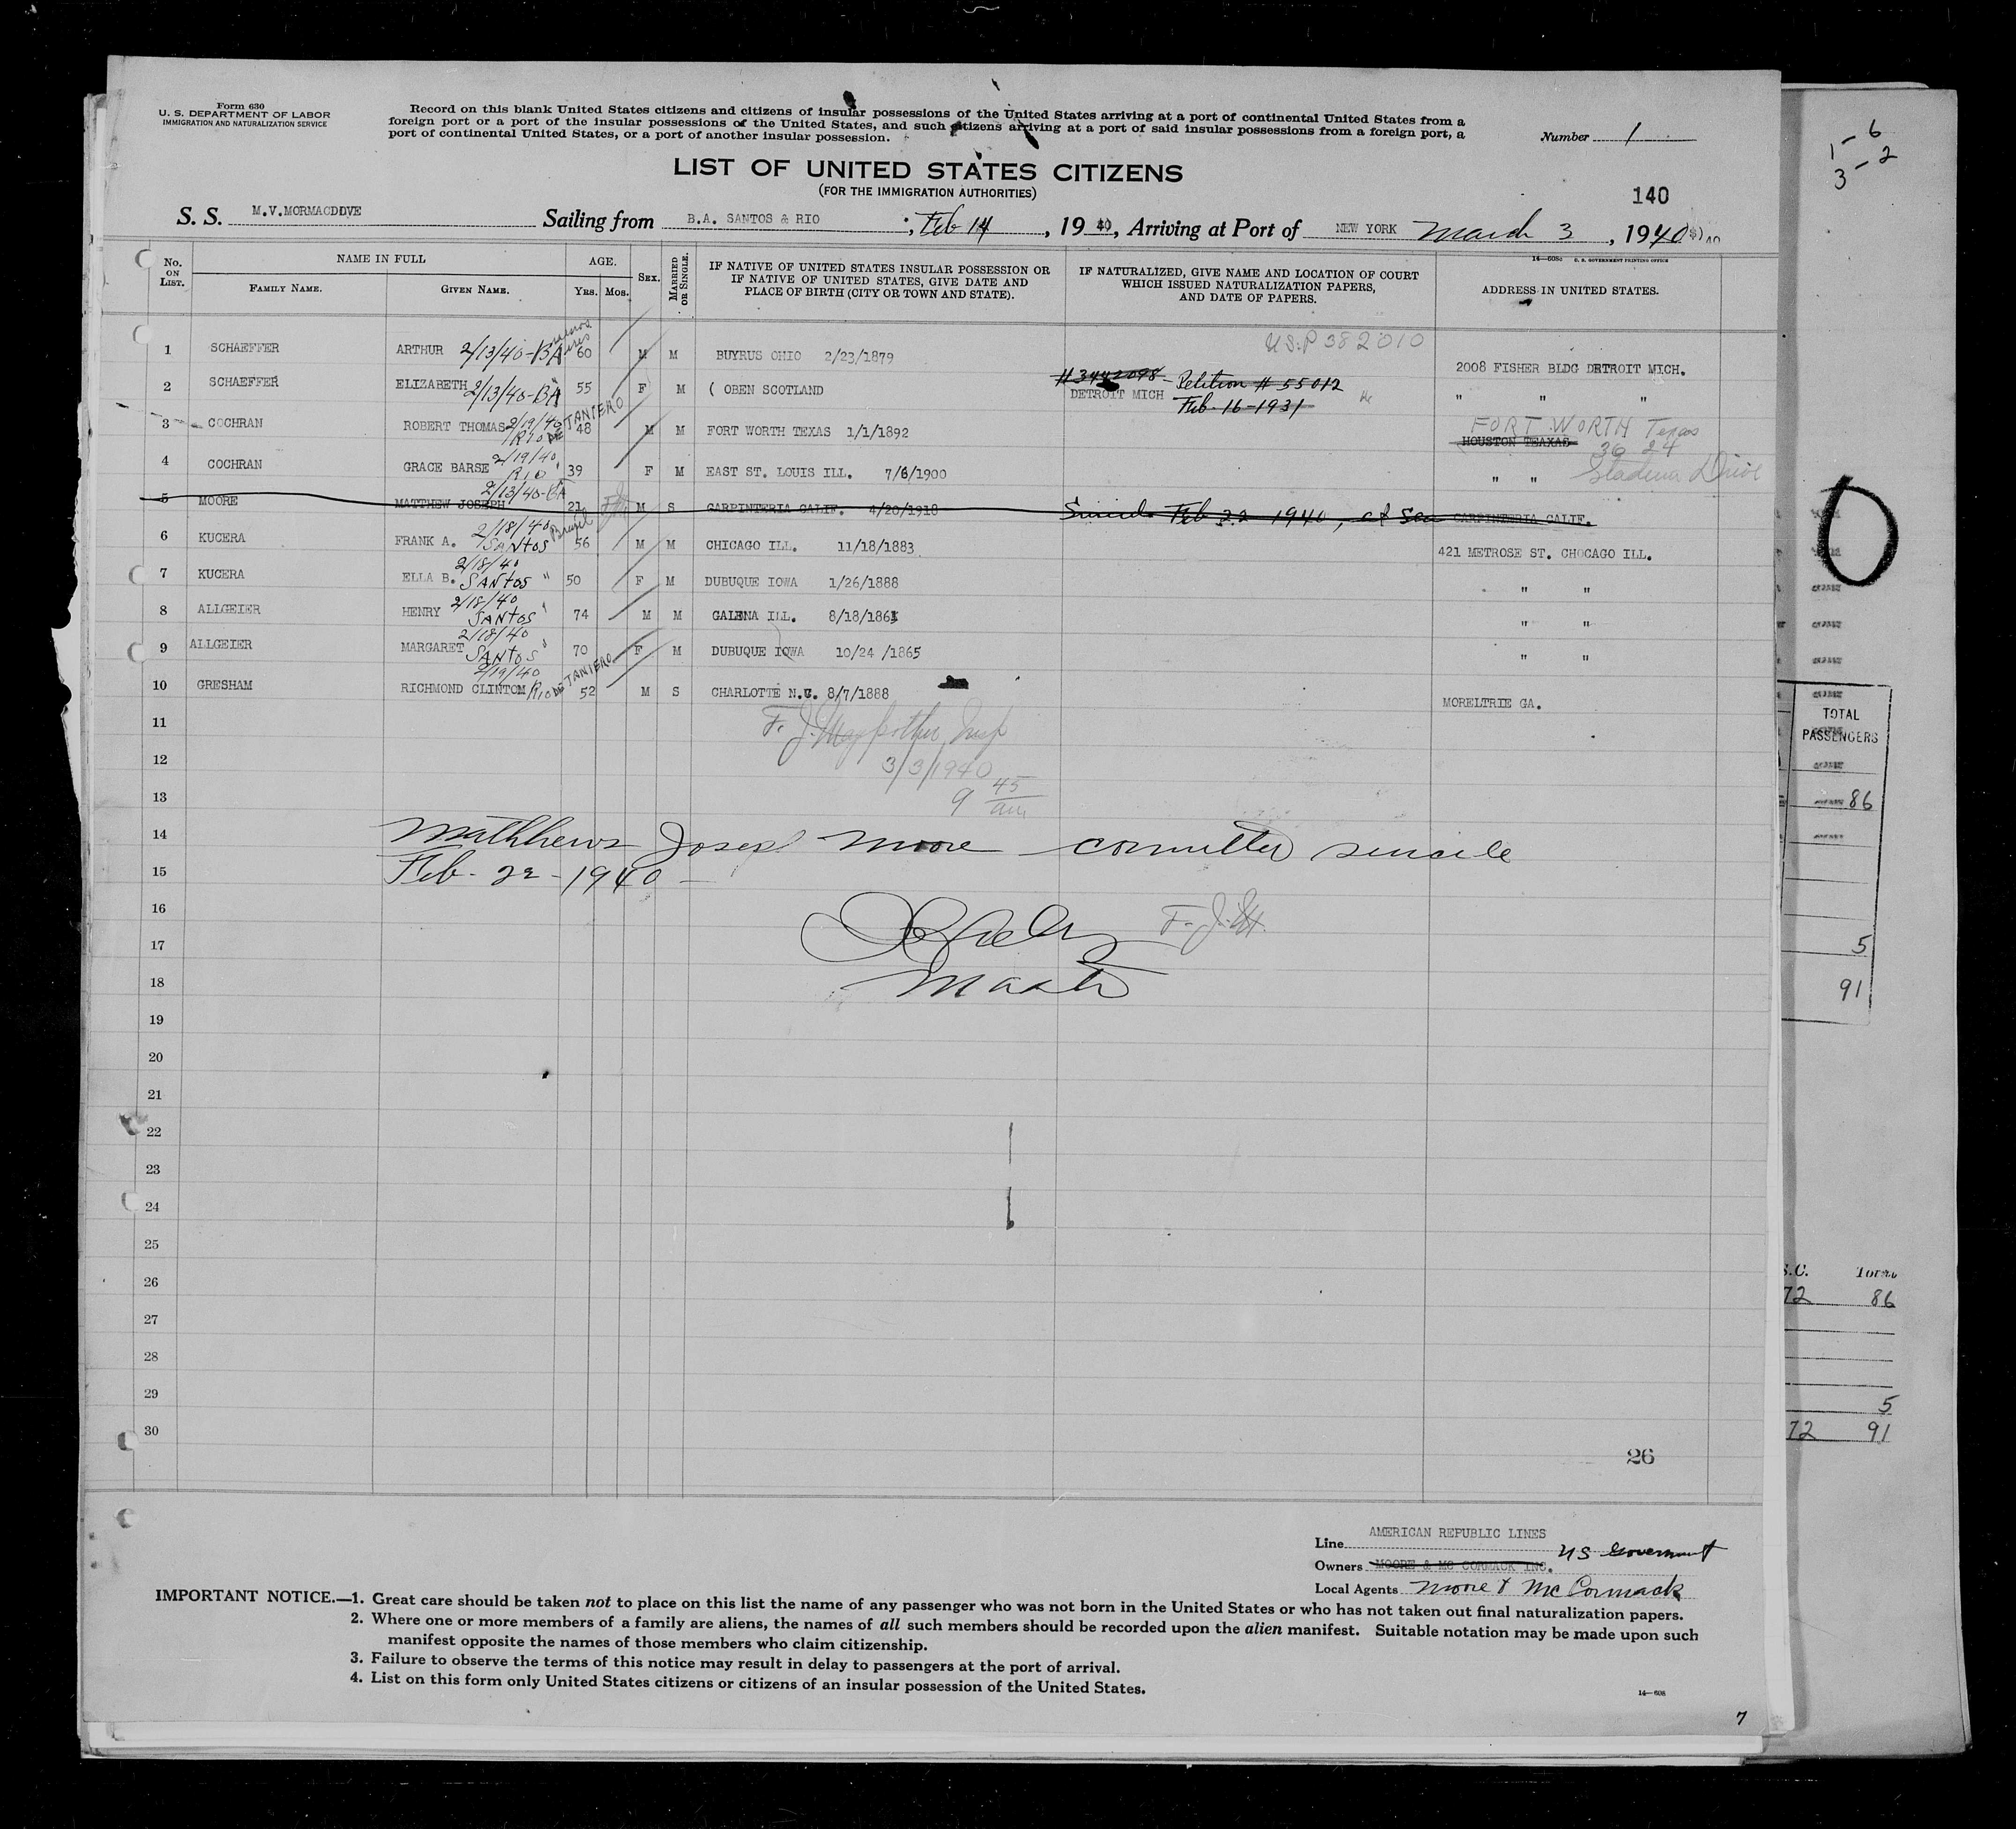 Form 630
U. S. DEPARTMENT OF LABOR
IMMIGRATION AND NATURALIZATION SERVICE
Record on this blank United States citizens and citizens of insular possessions of the United States arriving at a port of continental United States from a
foreign port or a port of the insular possessions of the United States, and such citizens arriving at a port of said insular possessions from a foreign port, a
port of continental United States, or a port of another insular possession.
Number 1
1 - 6
3 - 2
LIST OF UNITED STATES CITIZENS
(FOR THE IMMIGRATION AUTHORITIES)
140
S. S. M.V.MORMACDOVE Sailing from B.A. SANTOS & RIO , Feb 14, 1940, Arriving at Port of NEW YORK March 3, 1940
14-608c U. S. GOVERNMENT PRINTING OFFICE
No. ON LIST. NAME IN FULL FAMILY NAME. GIVEN NAME. AGE. YRS. MOS. SEX. MARRIED OR SINGLE. IF NATIVE OF UNITED STATES INSULAR POSSESSION OR IF NATIVE OF UNITED STATES, GIVE DATE AND PLACE OF BIRTH (CITY OR TOWN AND STATE). IF NATURALIZED, GIVE NAME AND LOCATION OF COURT WHICH ISSUED NATURALIZATION PAPERS, AND DATE OF PAPERS. ADDRESS IN UNITED STATES.
U.S.P 382010
1 SCHAEFFER ARTHUR 2/13/40-BA 60 M M BUYRUS OHIO 2/23/1879 2008 FISHER BLDG DETROIT MICH.
2 SCHAEFFER ELIZABETH 2/13/40-BA 55 F M ( OBEN SCOTLAND #3442098 - Petition # 55012 DETROIT MICH Feb-16-1931 " " "
3 COCHRAN ROBERT THOMAS 2/19/40 RIO DE JANIERO 48 M M FORT WORTH TEXAS 1/1/1892 FORT WORTH Texas HOUSTON TEAXAS 36 24
4 COCHRAN GRACE BARSE 2/19/40 RIO " 39 F M EAST ST. LOUIS ILL. 7/6/1900 " " Drive
5 MOORE MATTHEW JOSEPH 2/13/40-BA 21 M S CARPINTERIA CALIF. 4/20/1918 Suicide Feb 22 1940, at Sea CARPINTERIA CALIF.
6 KUCERA FRANK A. 2/18/40 SANTOS Brazil 56 M M CHICAGO ILL. 11/18/1883 421 METROSE ST. CHOCAGO ILL.
7 KUCERA ELLA B. 2/18/40 SANTOS " 50 F M DUBUQUE IOWA 1/26/1888 " "
8 ALLGEIER HENRY 2/18/40 SANTOS " 74 M M GALENA ILL. 8/18/1865 " "
9 ALLGEIER MARGARET 2/18/40 SANTOS " 70 F M DUBUQUE IOWA 10/24 /1865 " "
10 GRESHAM RICHMOND CLINTOM 2/19/40 RIO DE JANIERO 52 M S CHARLOTTE N.C. 8/7/1888 MORELTRIE GA.
11
12 3/3/1940
13 9 45 am
14 Matthews Joseph Moore committed suicide
15 Feb - 22 - 1940 -
16
17
18 Master
19
20
21
22
23
24
25
26
27
28
29
30
26
TOTAL
PASSENGERS
86
5
91
S.C. Total
72 86
5
72 91
Line AMERICAN REPUBLIC LINES
Owners MOORE & MC CORMACK INC. US Government
Local Agents Moore & McCormack
IMPORTANT NOTICE.—1. Great care should be taken not to place on this list the name of any passenger who was not born in the United States or who has not taken out final naturalization papers.
2. Where one or more members of a family are aliens, the names of all such members should be recorded upon the alien manifest. Suitable notation may be made upon such
manifest opposite the names of those members who claim citizenship.
3. Failure to observe the terms of this notice may result in delay to passengers at the port of arrival.
4. List on this form only United States citizens or citizens of an insular possession of the United States.
14-608
7